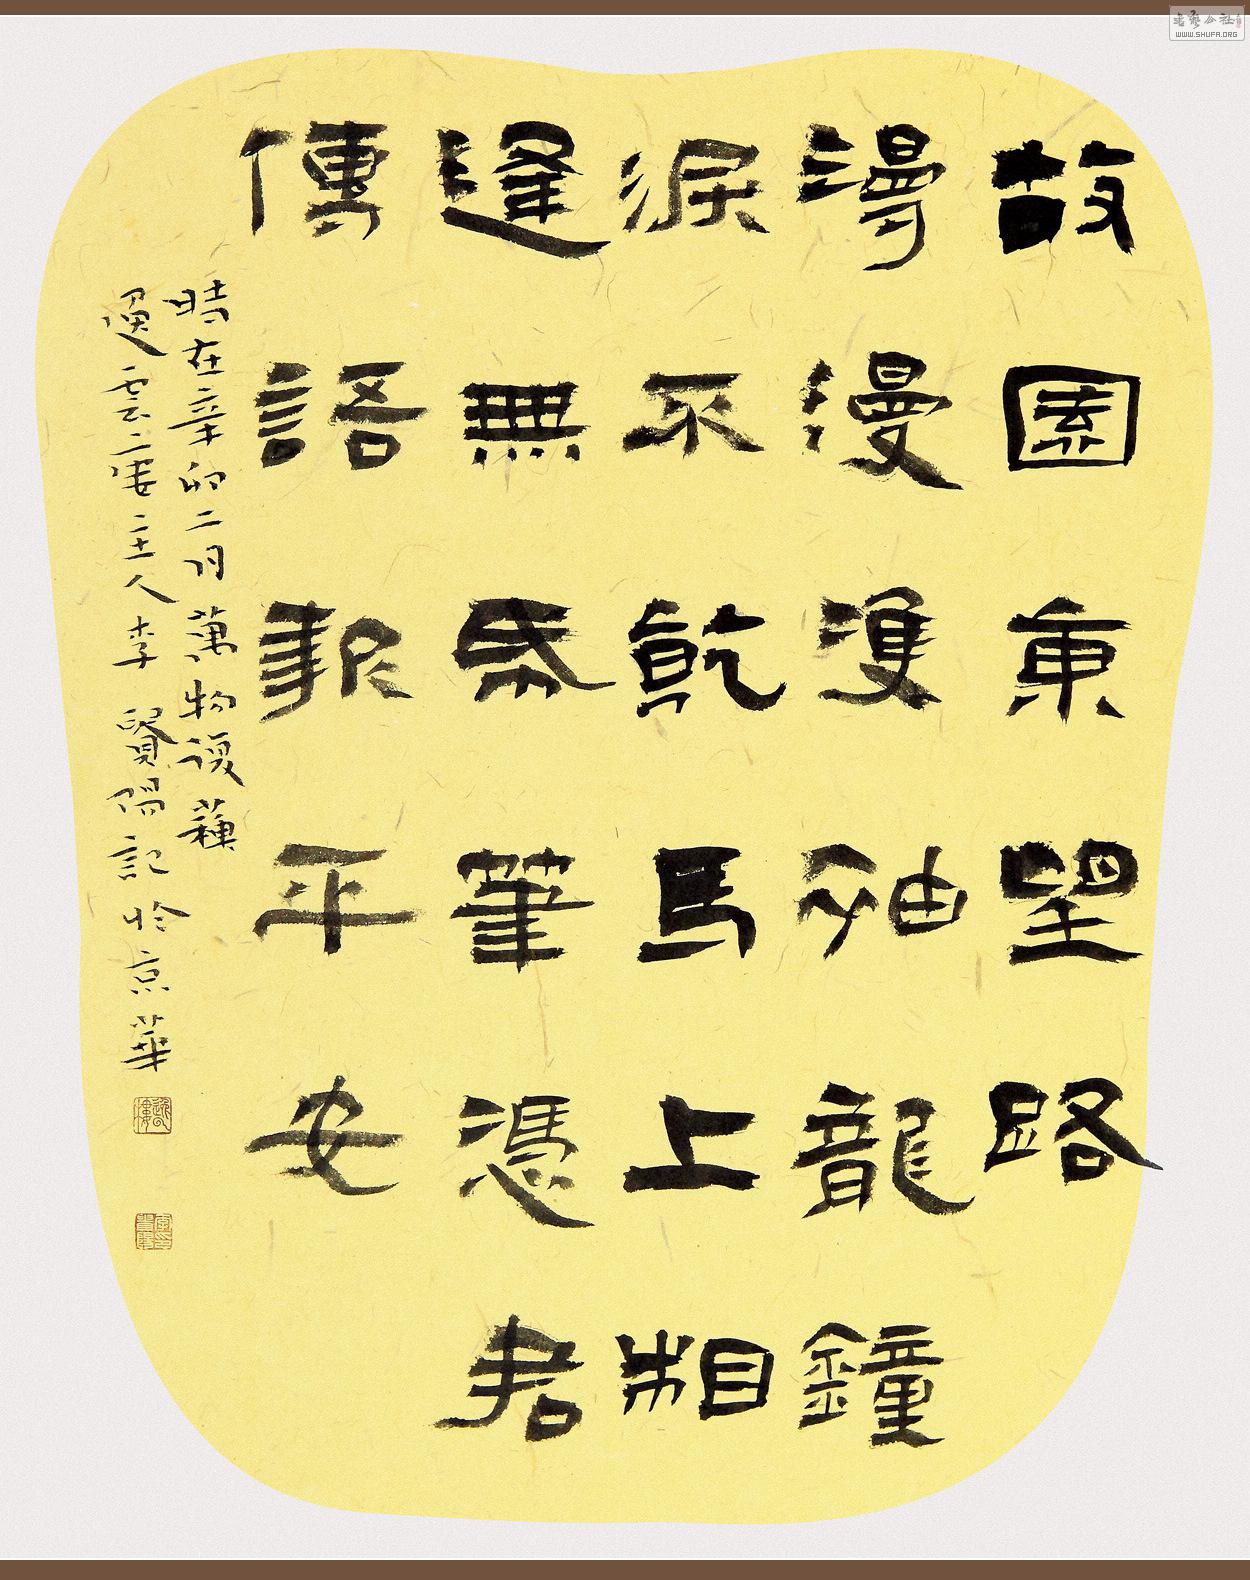 故園東望路
漫漫雙袖龍鐘
淚不乾馬上相
逢無帋筆憑君
傳語報平安
時在辛卯二月萬物復蘇
雲婁主人李賢陽記於京華
書藝公社
WWW.SHUFA.ORG